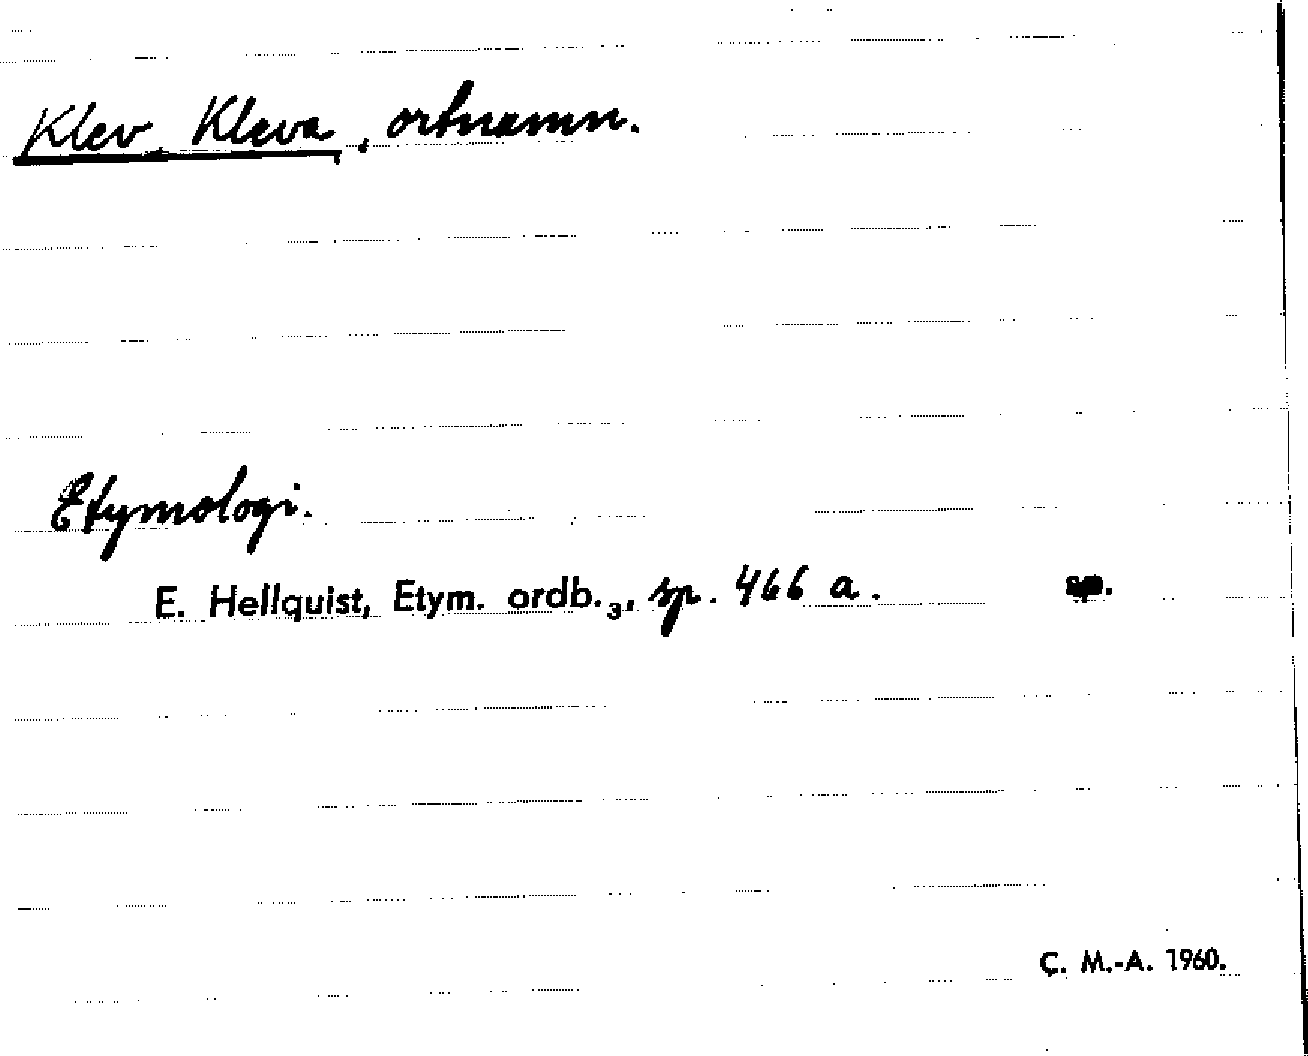 Klev, Kleva, ortnamn.
Etymologi.
E. Hellquist, Etym. ordb.₃, sp. 466 a. sp.
C. M.-A. 1960.